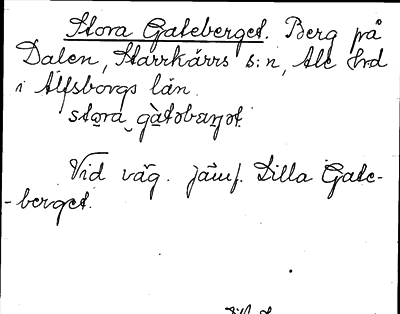 Stora Gateberget. Berg på
Dalen, Starrkärrs s:n, Ale hrd
i Älfsborgs län.
stora gàtəbærjət.
Vid väg. jämf. Lilla Gate-
-berget.